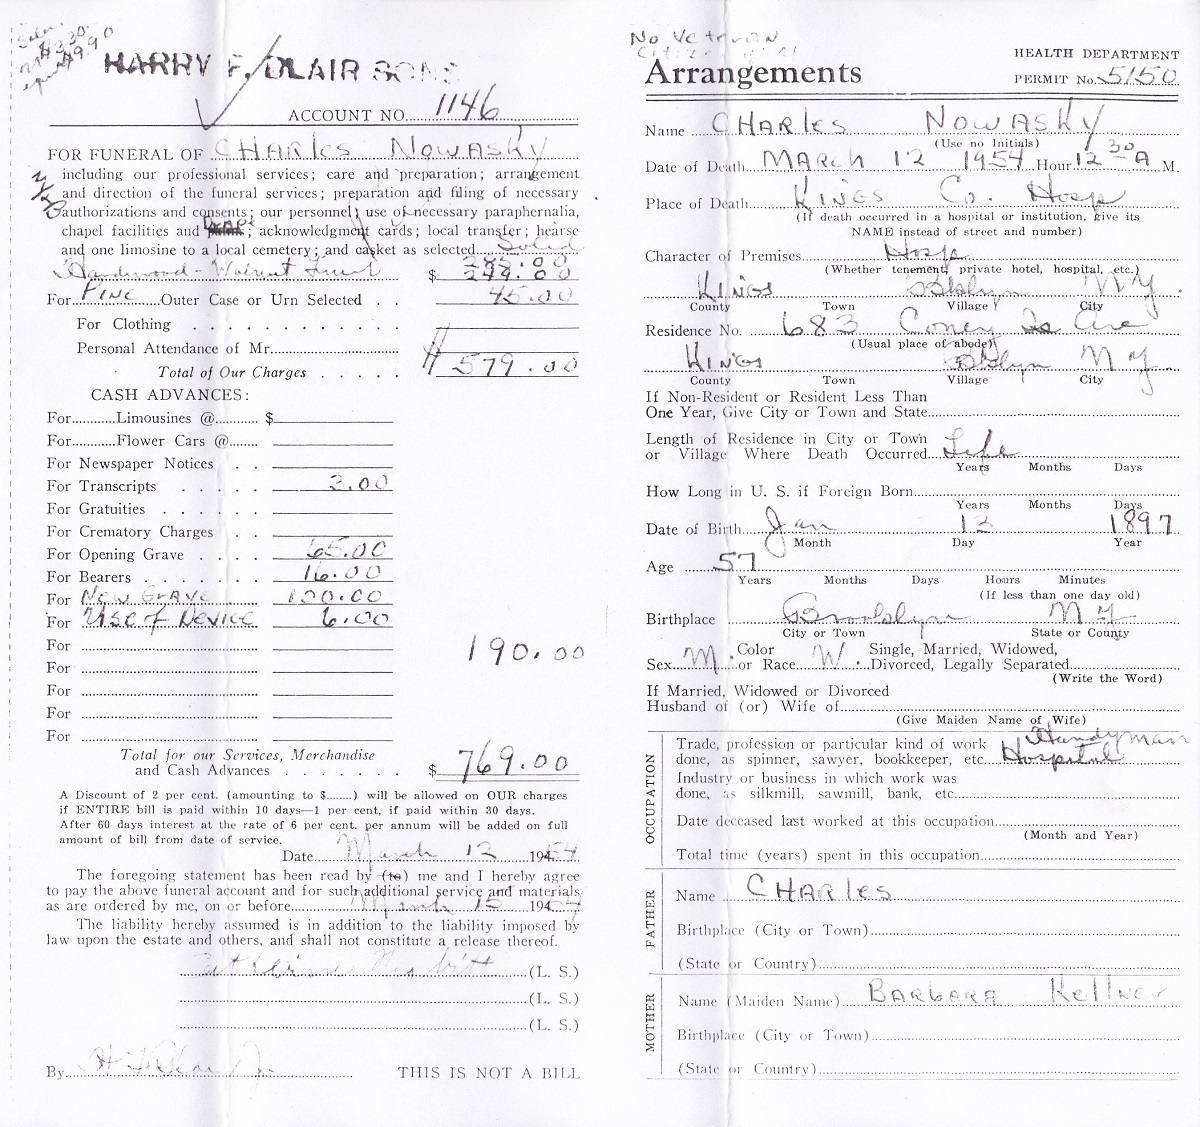 HARRY F. BLAIR SONS
ACCOUNT NO. 1146
FOR FUNERAL OF CHARLES NOWASKY
including our professional services; care and preparation; arrangement
and direction of the funeral services; preparation and filing of necessary
authorizations and consents; our personnel; use of necessary paraphernalia,
chapel facilities and ; acknowledgment cards; local transfer; hearse
and one limosine to a local cemetery; and casket as selected Solid
Hardwood - Walnut $
For PINE Outer Case or Urn Selected . . 45.00
For Clothing . . . . . . . . . . . .
Personal Attendance of Mr.
Total of Our Charges . . . . . # 579.00
CASH ADVANCES:
For Limousines @ $
For Flower Cars @
For Newspaper Notices . .
For Transcripts . . . . . 3.00
For Gratuities . . . . . .
For Crematory Charges . .
For Opening Grave . . . . 65.00
For Bearers . . . . . . . 16.00
For NEW GRAVE 100.00
For Use of DEVICE 6.00
For
190.00
For
For
For
For
Total for our Services, Merchandise
and Cash Advances . . . . . . . $ 769.00
A Discount of 2 per cent. (amounting to $........) will be allowed on OUR charges
if ENTIRE bill is paid within 10 days—1 per cent, if paid within 30 days.
After 60 days interest at the rate of 6 per cent. per annum will be added on full
amount of bill from date of service.
Date March 12 1954
The foregoing statement has been read by (to) me and I hereby agree
to pay the above funeral account and for such additional service and materials
as are ordered by me, on or before March 15 1954
The liability hereby assumed is in addition to the liability imposed by
law upon the estate and others, and shall not constitute a release thereof.
Nesbitt (L. S.)
(L. S.)
(L. S.)
By THIS IS NOT A BILL
No Veteran
Citizen
Arrangements
HEALTH DEPARTMENT
PERMIT No. 5150
Name CHARLES NOWASKY
(Use no Initials)
Date of Death MARCH 12 1954 Hour 12 30 A M.
Place of Death KINGS Co. Hosp
(If death occurred in a hospital or institution, give its
NAME instead of street and number)
Character of Premises Hosp
(Whether tenement, private hotel, hospital, etc.)
KINGS Bklyn N Y
County Town Village City
Residence No. 683 Coney Is Ave
(Usual place of abode)
KINGS Bklyn N Y
County Town Village City
If Non-Resident or Resident Less Than
One Year, Give City or Town and State
Length of Residence in City or Town
or Village Where Death Occurred Life
Years Months Days
How Long in U. S. if Foreign Born
Years Months Days
Date of Birth Jan 12 1897
Month Day Year
Age 57
Years Months Days Hours Minutes
(If less than one day old)
Birthplace Brooklyn N Y
City or Town State or County
Sex M. Color or Race W. Single, Married, Widowed,
Divorced, Legally Separated
(Write the Word)
If Married, Widowed or Divorced
Husband of (or) Wife of
(Give Maiden Name of Wife)
OCCUPATION
Trade, profession or particular kind of work Handyman
done, as spinner, sawyer, bookkeeper, etc. Hospital
Industry or business in which work was
done, as silkmill, sawmill, bank, etc.
Date deceased last worked at this occupation
(Month and Year)
Total time (years) spent in this occupation
FATHER
Name CHARLES
Birthplace (City or Town)
(State or Country)
MOTHER
Name (Maiden Name) BARBARA Kellner
Birthplace (City or Town)
(State or Country)